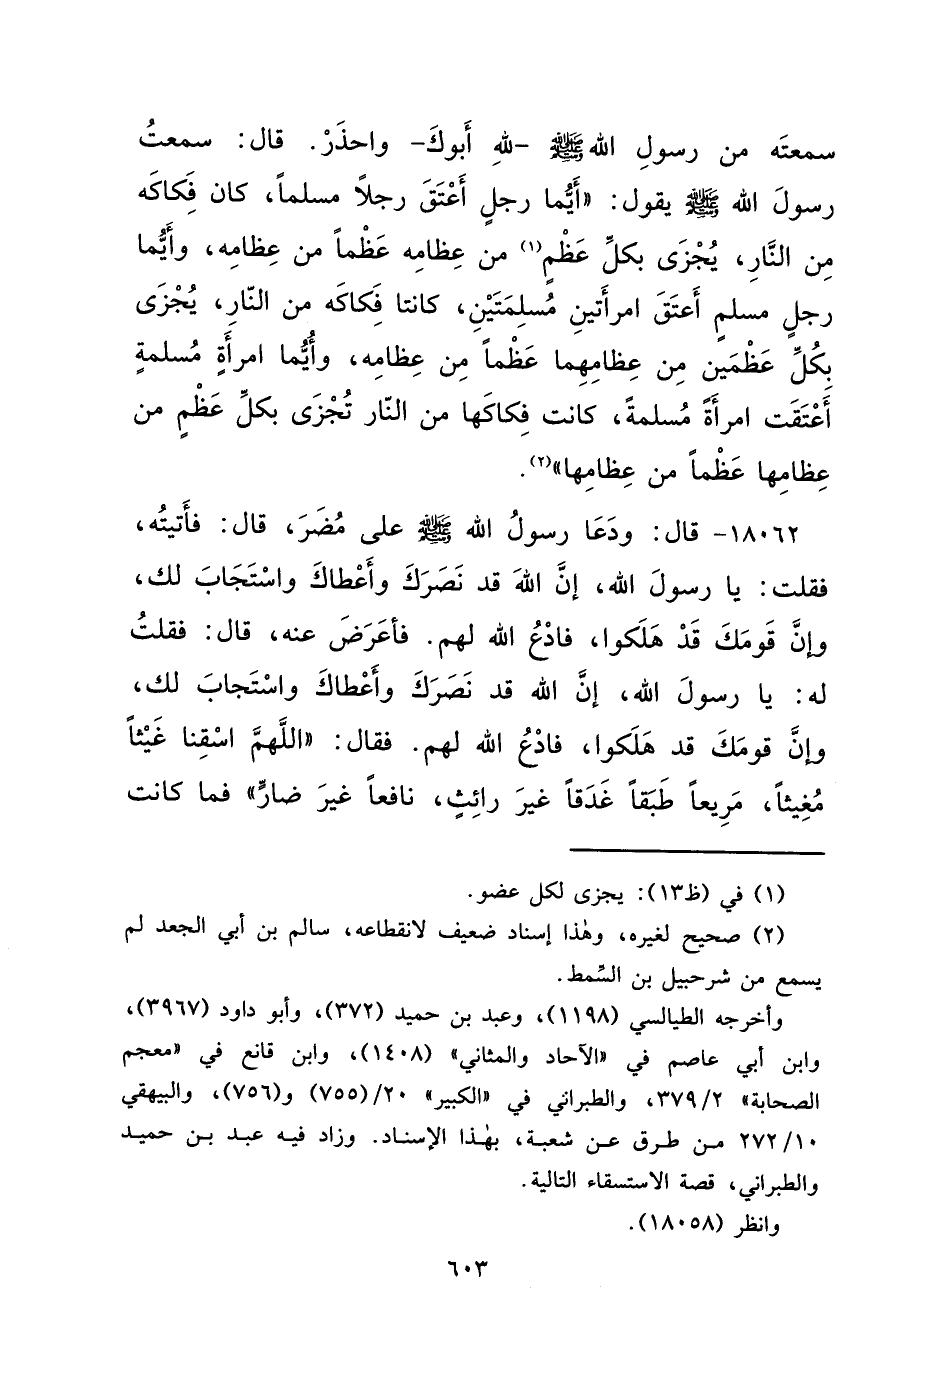 سمعتَه من رسولِ الله ﷺ -للهِ أَبوكَ- واحذَرْ. قال: سمعتُ
رسولَ الله ﷺ يقول: «أَيُّما رجلٍ أَعْتَقَ رجلاً مسلماً، كان فِكاكَه
مِن النَّارِ، يُجْزَى بكلِّ عَظْمٍ(١) من عِظامِه عَظْماً من عِظامِه، وأَيُّما
رجلٍ مسلمٍ أَعتَقَ امرأَتينِ مُسلِمَتَيْنِ، كانتا فَكاكَه من النّارِ، يُجْزَى
بِكُلِّ عَظْمَين مِن عِظامِهِما عَظْماً مِن عِظامِه، وأَيُّما امرأَةٍ مُسلمةٍ
أَعْتَقَت امرأَةً مُسلمةً، كانت فِكاكَها من النّار تُجْزَى بكلِّ عَظْمٍ من
عِظامِها عَظْماً من عِظامِها»(٢).
١٨٠٦٢- قال: ودَعَا رسولُ الله ﷺ على مُضَرَ، قال: فأَتيتُه،
فقلت: يا رسولَ الله، إنَّ اللهَ قد نَصَرَكَ وأَعْطاكَ واسْتَجَابَ لك،
وإنَّ قَومَكَ قَدْ هَلَكوا، فادْعُ الله لهم. فأَعرَضَ عنه، قال: فقلتُ
له: يا رسولَ الله، إنَّ الله قد نَصَرَكَ وأَعْطاكَ واسْتَجابَ لك،
وإنَّ قومَكَ قد هَلَكوا، فادْعُ الله لهم. فقال: «اللَّهمَّ اسْقِنا غَيْثاً
مُغِيثاً، مَرِيعاً طَبَقاً غَدَقاً غيرَ رائِثٍ، نافعاً غيرَ ضارٍّ» فما كانت
(١) في (ظ١٣): يجزى لكل عضو.
(٢) صحيح لغيره، وهٰذا إسناد ضعيف لانقطاعه، سالم بن أبي الجعد لم
يسمع من شرحبيل بن السِّمط.
وأخرجه الطيالسي (١١٩٨)، وعبد بن حميد (٣٧٢)، وأبو داود (٣٩٦٧)،
وابن أبي عاصم في «الآحاد والمثاني» (١٤٠٨)، وابن قانع في «معجم
الصحابة» ٣٧٩/٢، والطبراني في «الكبير» ٢٠/(٧٥٥) و(٧٥٦)، والبيهقي
٢٧٢/١٠ من طرق عن شعبة، بهٰذا الإسناد. وزاد فيه عبد بن حميد
والطبراني، قصة الاستسقاء التالية.
وانظر (١٨٠٥٨).
٦٠٣